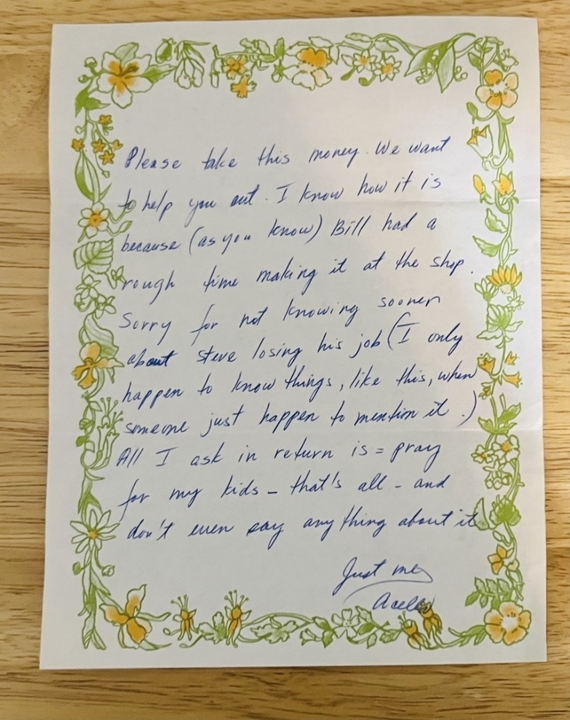 Please take this money. We want
to help you out. I know how it is
because (as you know) Bill had a
rough time making it at the shop.
Sorry for not knowing sooner
about Steve losing his job (I only
happen to know things, like this, when
someone just happen to mention it.)
All I ask in return is = pray
for my kids – that's all – and
don't even say anything about it.
Just me